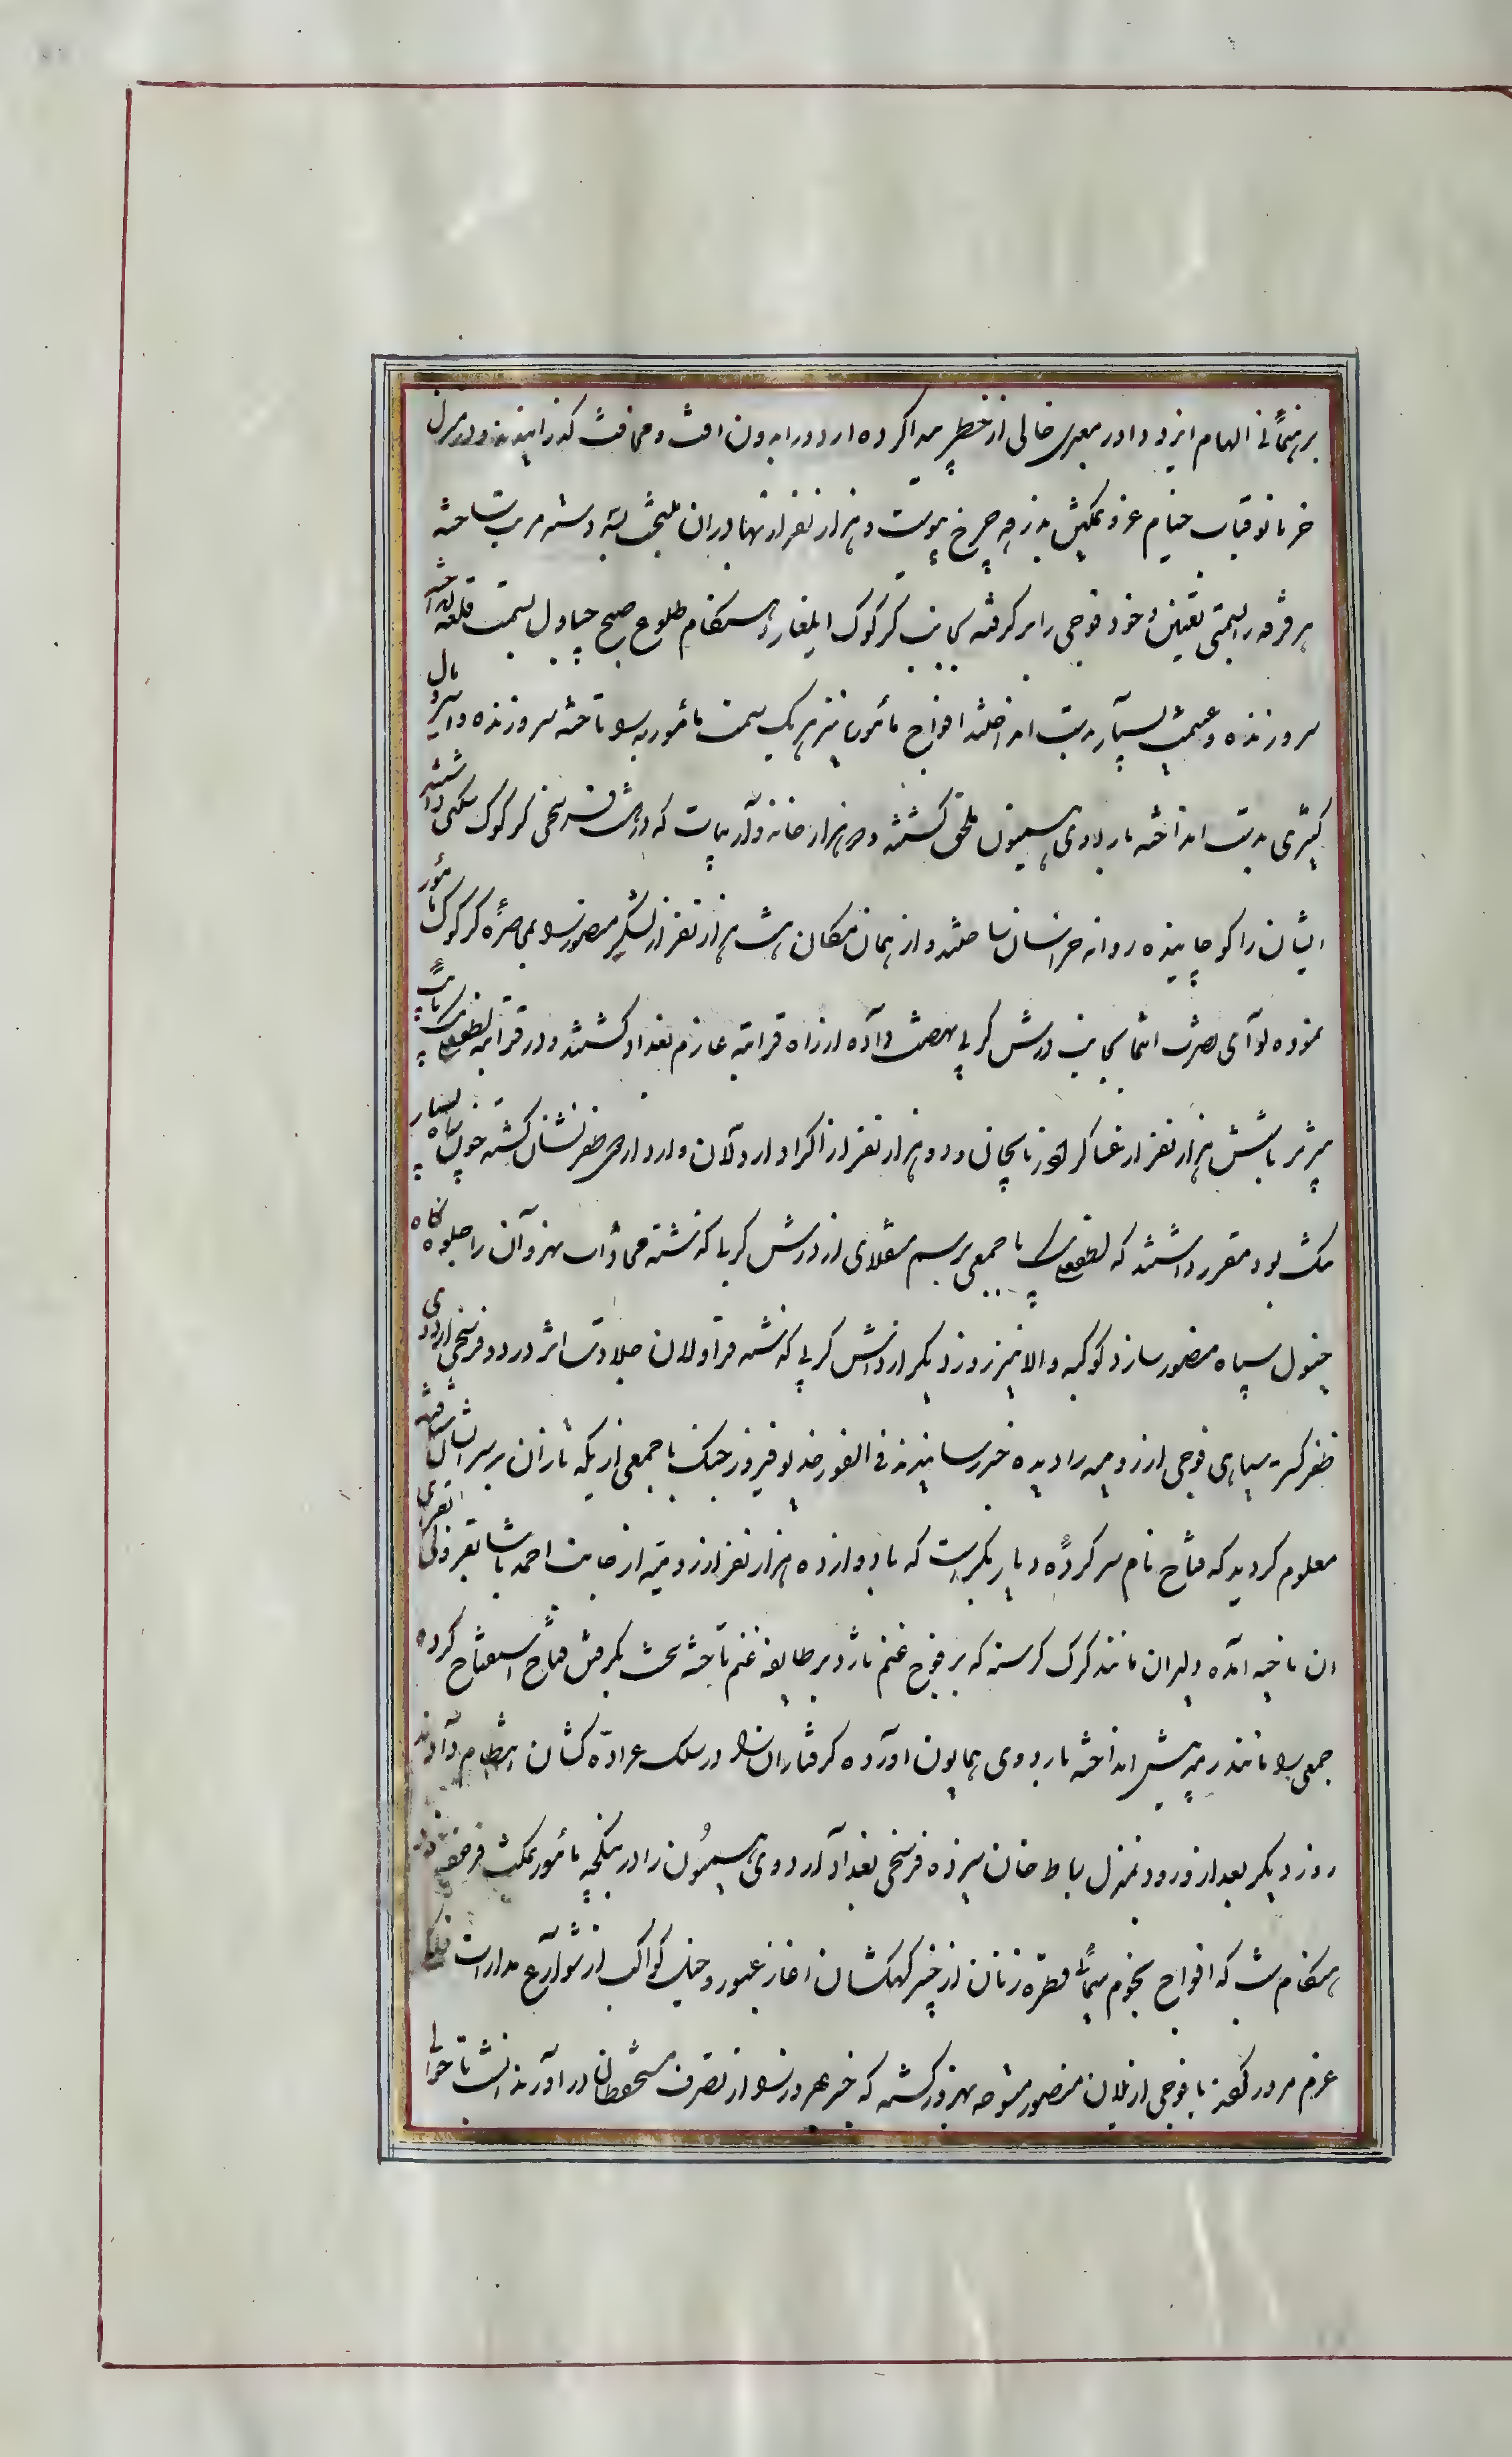 برهنمائی الهام ایزد دادر معبری خالی از خطر پیدا کرده اردو را بدون افت و مخافت گذرانیدند و در منزل
خرماتو قباب خیام عز و تمکین بذروه چرخ پیوست و هزار نفر از بهادران منتخب بسه دسته مرتب ساخته
هر فرقه را بسمتی تعیین و خود فوجی را برگرفته بجانب کرکوک ایلغار و هنگام طلوع صبح چپاول بسمت قلعه انداخته
سر و زنده و غنیمت بسیار بدست انداختند افواج مأموره نیز هر یک بسمت مأموربه را تاخته سر و زنده و اسر و مال
کثیری بدست انداخته باردوی همیون ملحق گشتند و دو هزار خانه وار بیات که در شش فرسخی کرکوک سکنی داشتند
ایشان را کوچانیده روانه خراسان ساختند و از همان مکان هشت هزار نفر از لشکر منصور را بمحاصره کرکوک مأمور
نموده لوای نصرت انتما بجانب درش کرپی نهضت داده از راه قراتپه عازم بغداد گشتند و در قراتپه لطفعلی بیک نایب
تبریز با شش هزار نفر از عساکر اذربایجانی و دو هزار نفر از اکراد اردلان وارد اردوی ظفر نشان گشته چون سپاه بسیار
مکث بود مقرر داشتند که لطفعلی بیک با جمعی برسم منقلای از درش کرپی گذشته محاذات بهروان را جلوه گاه
خیول سپاه منصور سازد کوکبه والا نیز روز دیگر از درش کرپی گذشته قراولان جلادت اثر در دو فرسخی اردوی
ظفر کستر سیاهی فوجی از رومیه را دیده خبر رسانیدند فی الفور خدیو فیروز جنک با جمعی از یکه تازان بر سر ایشان شتافته
معلوم کردید که فتاح نام سرکرده دیار بکر است که با دوازده هزار نفر از رومیه از جانب احمد پاشا بقراولی
ان ناحیه آمده دلیران مانند گرک گرسنه که بر فوج غنم تازد بر طایفه غنم تاخته سخت بگرفتن فتاح استفتاح کرده
جمعی را مانند رمه پیش انداخته باردوی همایون آورده گرفتاران را در سلک عراده کشان انتظام دادند
روز دیگر بعد از ورود بمنزل بیاط خان سیزده فرسخی بغداد اردوی همیون را در ینکجه مأمور بمکث فرموده
هنگام شب که افواج نجوم سیماب قطره زنان از جسر کهکشان آغاز عبور و خیل کواکب از شوارع مدارات فلک
عزم مرور کردند با فوجی از یلان منصور متوجه بهروز گشته که جسر بهروز را از تصرف مستحفظان در آورند انشب تا حوالی